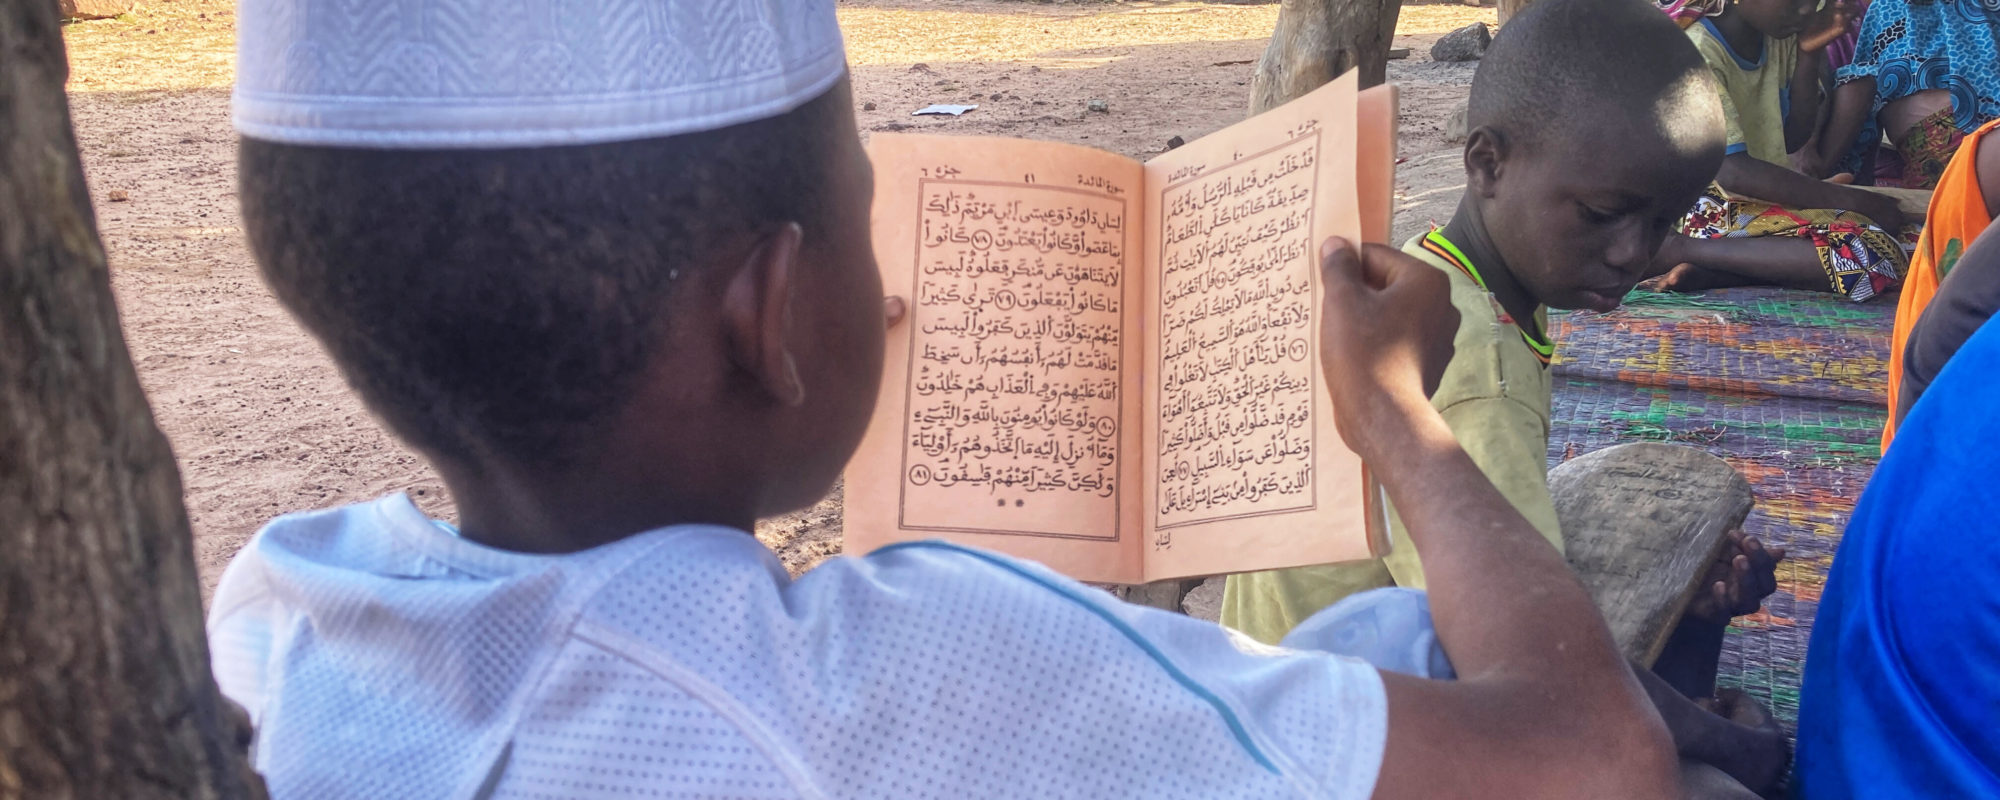 سورة المائدة ٤٠ جزء ٦
قَدْ خَلَتْ مِن قَبْلِهِ اِ۬لرُّسُلُ وَأُمُّهُۥ
صِدِّيقَةٌ كَانَا يَاكُلَٰنِ اِ۬لطَّعَامَ
اَ۟نظُرْ كَيْفَ نُبَيِّنُ لَهُمُ اُ۬لَايَٰتِ ثُمَّ
اَ۟نظُرَ اَنّ۪ىٰ يُوفَكُونَ ٧٥ قُلَ اَتَعْبُدُونَ
مِن دُونِ اِ۬للَّهِ مَا لَا يَمْلِكُ لَكُمْ ضَرّاً
وَلَا نَفْعاً وَاللَّهُ هُوَ اَ۬لسَّمِيعُ اُ۬لْعَلِيمُ
٧٦ قُلْ يَٰٓأَهْلَ اَ۬لْكِتَٰبِ لَا تَغْلُواْ فِي
دِينِكُمْ غَيْرَ اَ۬لْحَقِّ وَلَا تَتَّبِعُوٓاْ أَهْوَآءَ
قَوْمٍ قَد ضَّلُّواْ مِن قَبْلُ وَأَضَلُّواْ كَثِيراً
وَضَلُّواْ عَن سَوَآءِ اِ۬لسَّبِيلِ ٧٧ لُعِنَ
اَ۬لذِينَ كَفَرُواْ مِنۢ بَنِيٓ إِسْرَآءِيلَ عَلَىٰ
لِسَانِ
سورة المائدة ٤١ جزء ٦
لِسَانِ دَاوُۥدَ وَعِيسَى اَ۪بْنِ مَرْيَمَ ذَٰلِكَ
بِمَا عَصَواْ وَّكَانُواْ يَعْتَدُونَ ٧٨ كَانُواْ
لَا يَتَنَاهَوْنَ عَن مُّنكَرٍ فَعَلُوهُ لَبِيسَ
مَا كَانُواْ يَفْعَلُونَ ٧٩ تَر۪ىٰ كَثِيراً
مِّنْهُمْ يَتَوَلَّوْنَ اَ۬لذِينَ كَفَرُواْ لَبِيسَ
مَا قَدَّمَتْ لَهُمُۥٓ أَنفُسُهُمُۥٓ أَن سَخِطَ
اَ۬للَّهُ عَلَيْهِمْ وَفِي اِ۬لْعَذَابِ هُمْ خَٰلِدُونَ
٨٠ وَلَوْ كَانُواْ يُومِنُونَ بِاللَّهِ وَالنَّبِيٓءِ
وَمَآ أُنزِلَ إِلَيْهِ مَا اَ۪تَّخَذُوهُمُۥٓ أَوْلِيَآءَ
وَلَٰكِنَّ كَثِيراً مِّنْهُمْ فَٰسِقُونَ ٨١